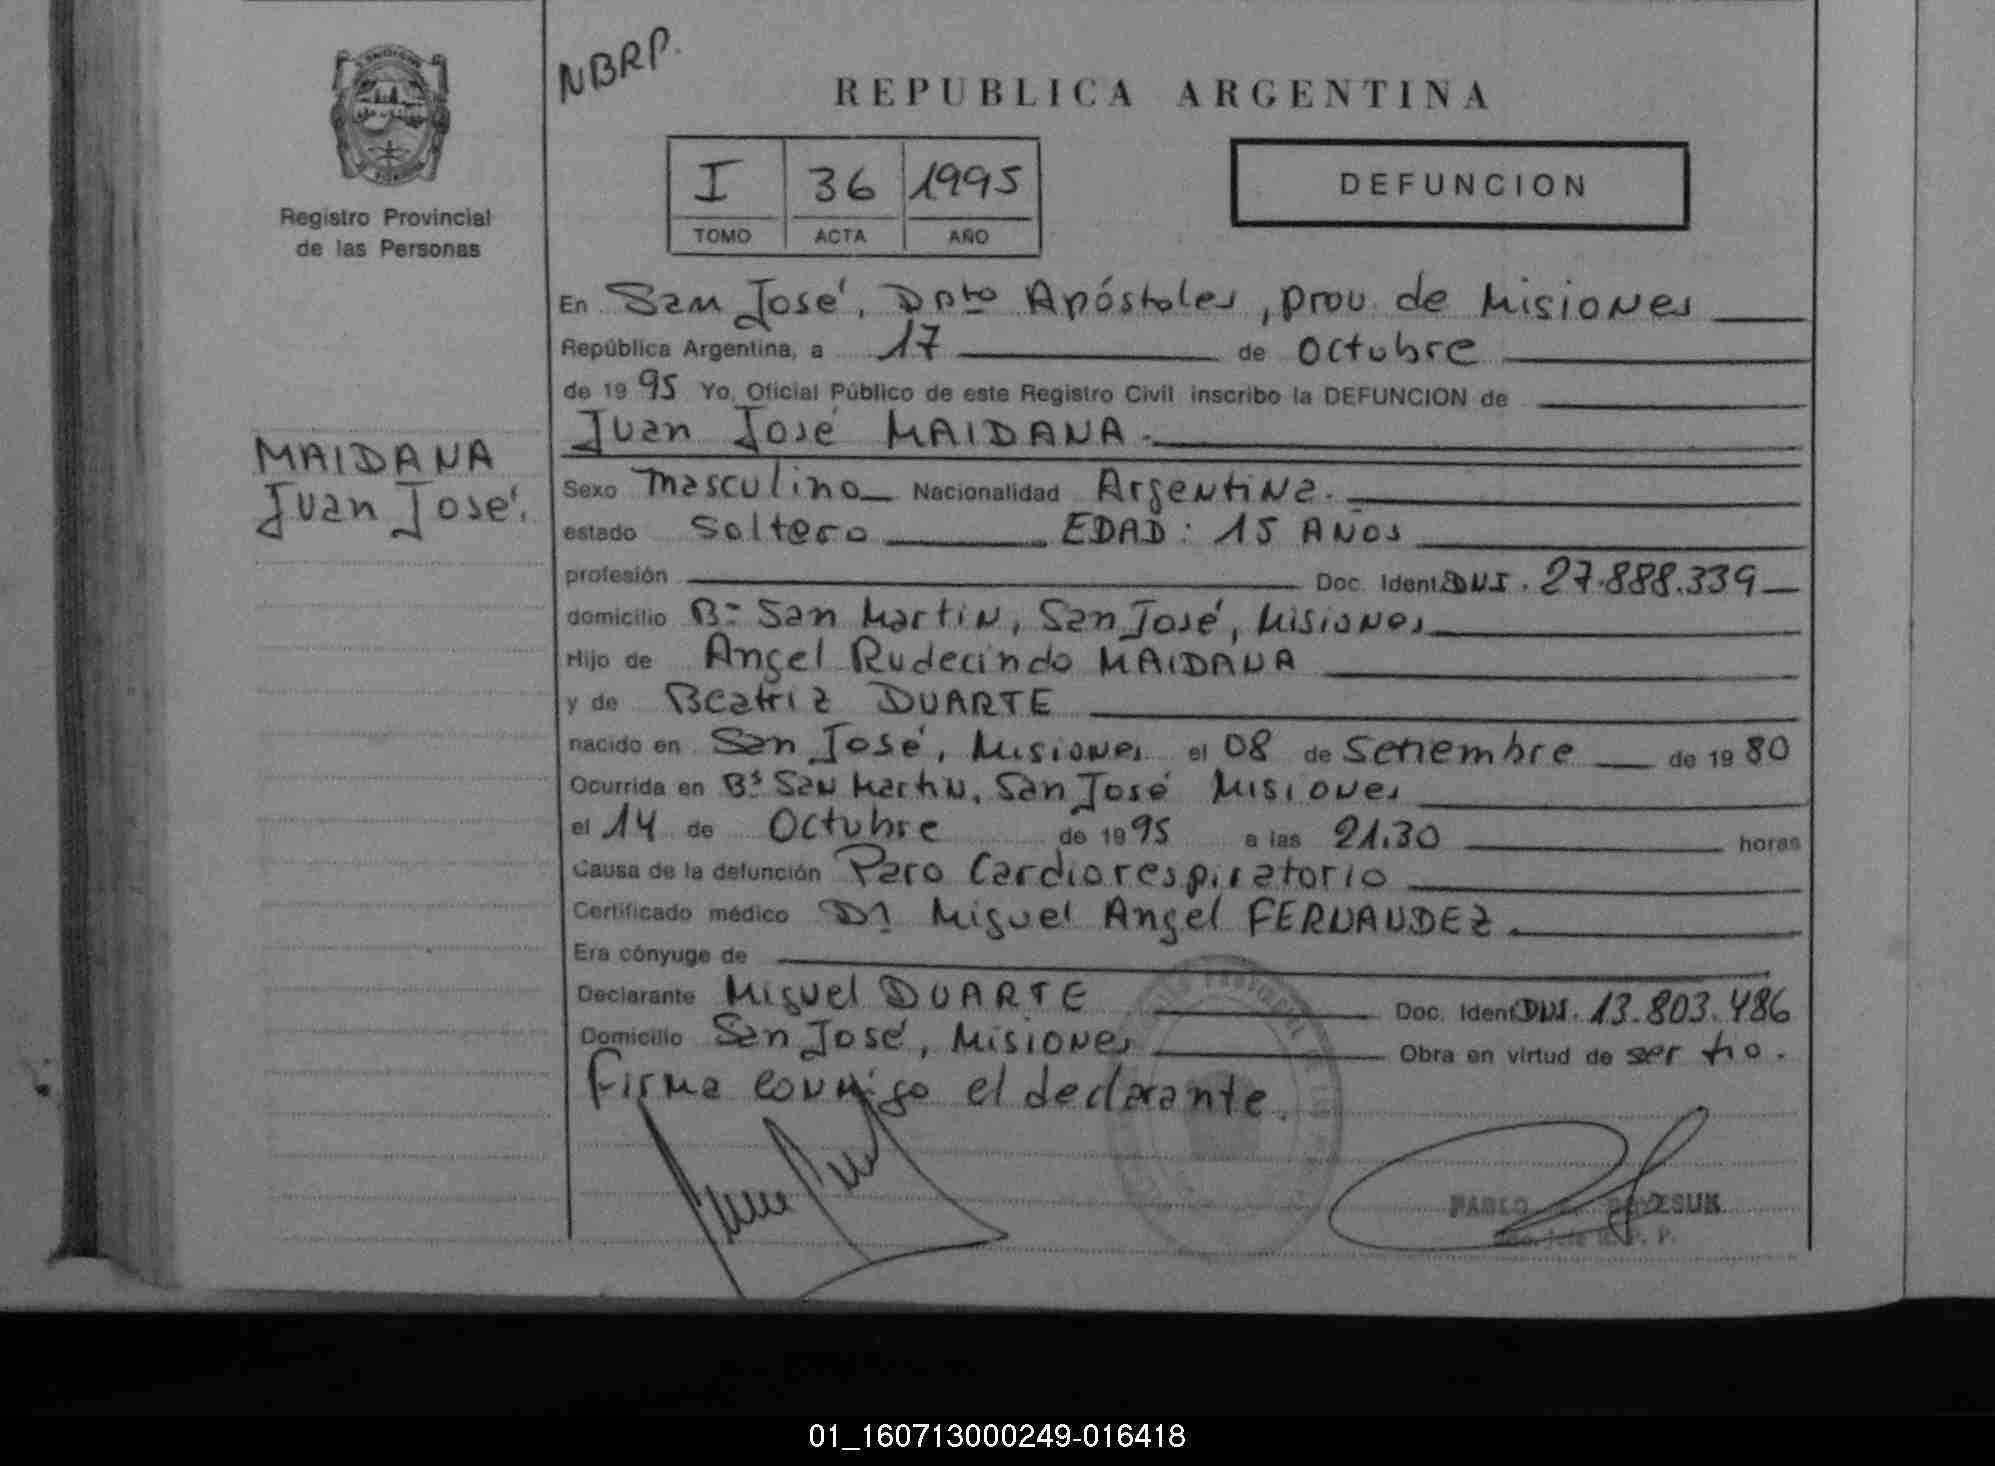 NBRP.
REPUBLICA ARGENTINA
I 36 1995
TOMO ACTA AÑO
DEFUNCION
Registro Provincial
de las Personas
MAIDANA
Juan José.
En San José, Dpto Apóstoles, prov. de Misiones
República Argentina, a 17 de Octubre
de 1995 Yo, Oficial Público de este Registro Civil inscribo la DEFUNCION de
Juan José MAIDANA.
Sexo Masculino Nacionalidad Argentina.
estado Soltero EDAD: 15 AÑOS
profesión Doc. Ident. DNI. 27.888.339
domicilio Bº San Martin, San José, Misiones
Hijo de Angel Rudecindo MAIDANA
y de Beatriz DUARTE
nacido en San José, Misiones el 08 de Setiembre de 1980
Ocurrida en Bº San Martin, San José Misiones
el 14 de Octubre de 1995 a las 21.30 horas
Causa de la defunción Paro Cardiorespiratorio
Certificado médico Dr Miguel Angel FERNANDEZ.
Era cónyuge de
Declarante Miguel DUARTE Doc. Ident. DNI. 13.803.486
Domicilio San José, Misiones Obra en virtud de ser tío.
Firma conmigo el declarante.
PABLO
01_160713000249-016418